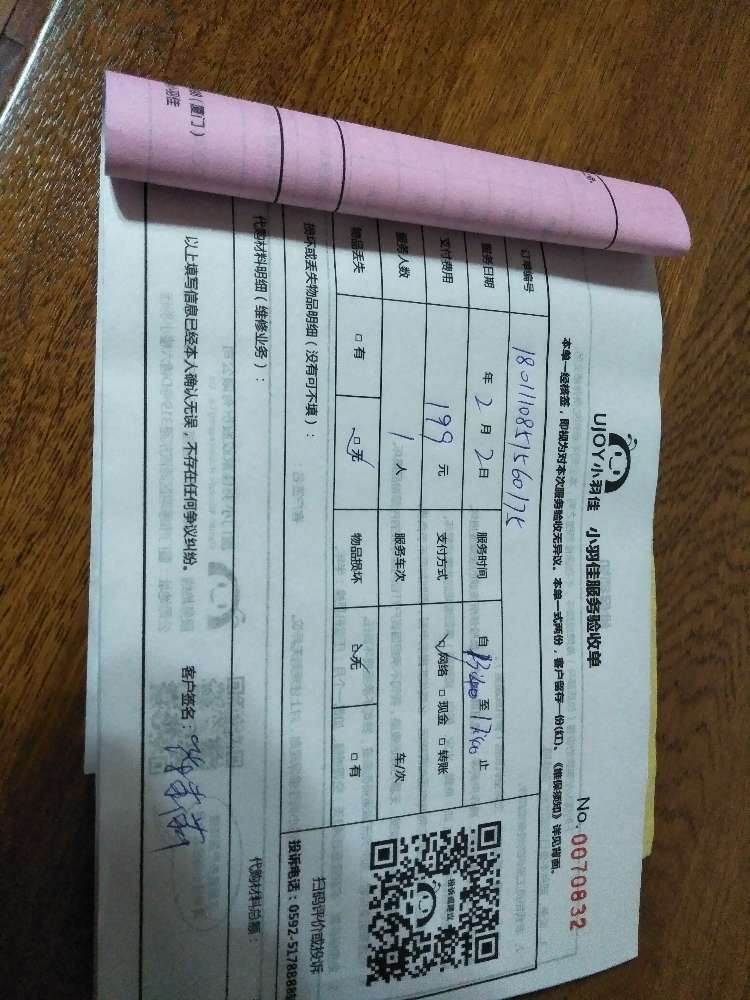 UJOY小羽佳 小羽佳服务验收单
No. 0070832
本单一经核签，即视为对本次服务验收无异议。本单一式两份，客户留存一份(红)。《维保须知》详见背面。
订单编号
服务日期 年 2 月 2 日 服务时间 自 13:00 至 17:00 止
支付费用 199 元 支付方式 ☑网络 □现金 □转账
服务人数 1 人 服务车次 车/次
物品丢失 □有 ☑无 物品损坏 ☑无 □有
损坏或丢失物品明细（没有可不填）：
扫码评价或投诉
投诉电话：0592-5178888
投诉或建议
代购材料明细（维修业务）：
代购材料总额：
以上填写信息已经本人确认无误，不存在任何争议纠纷。 客户签名：
(厦门)
羽佳